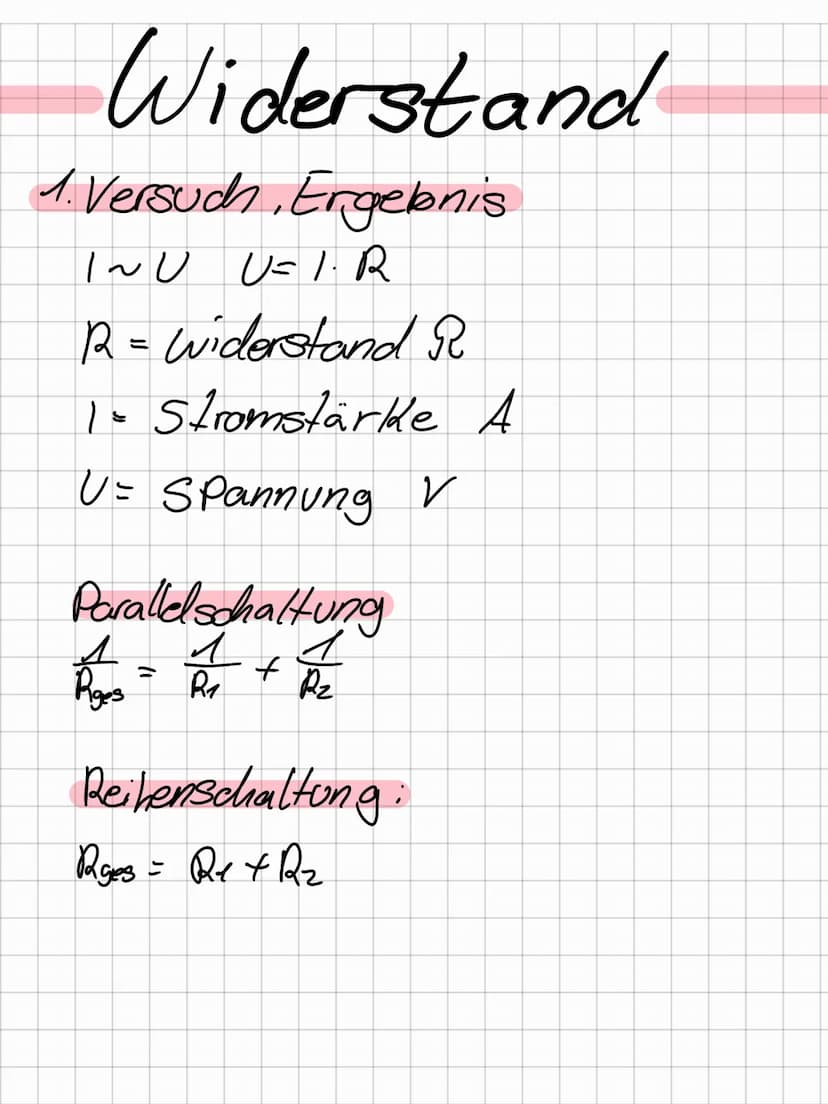 Widerstand
1. Versuch, Ergebnis
I ~ U U = I · R
R = Widerstand Ω
I = Stromstärke A
U = Spannung V
Parallelschaltung
1/Rges = 1/R1 + 1/R2
Reihenschaltung:
Rges = R1 + R2